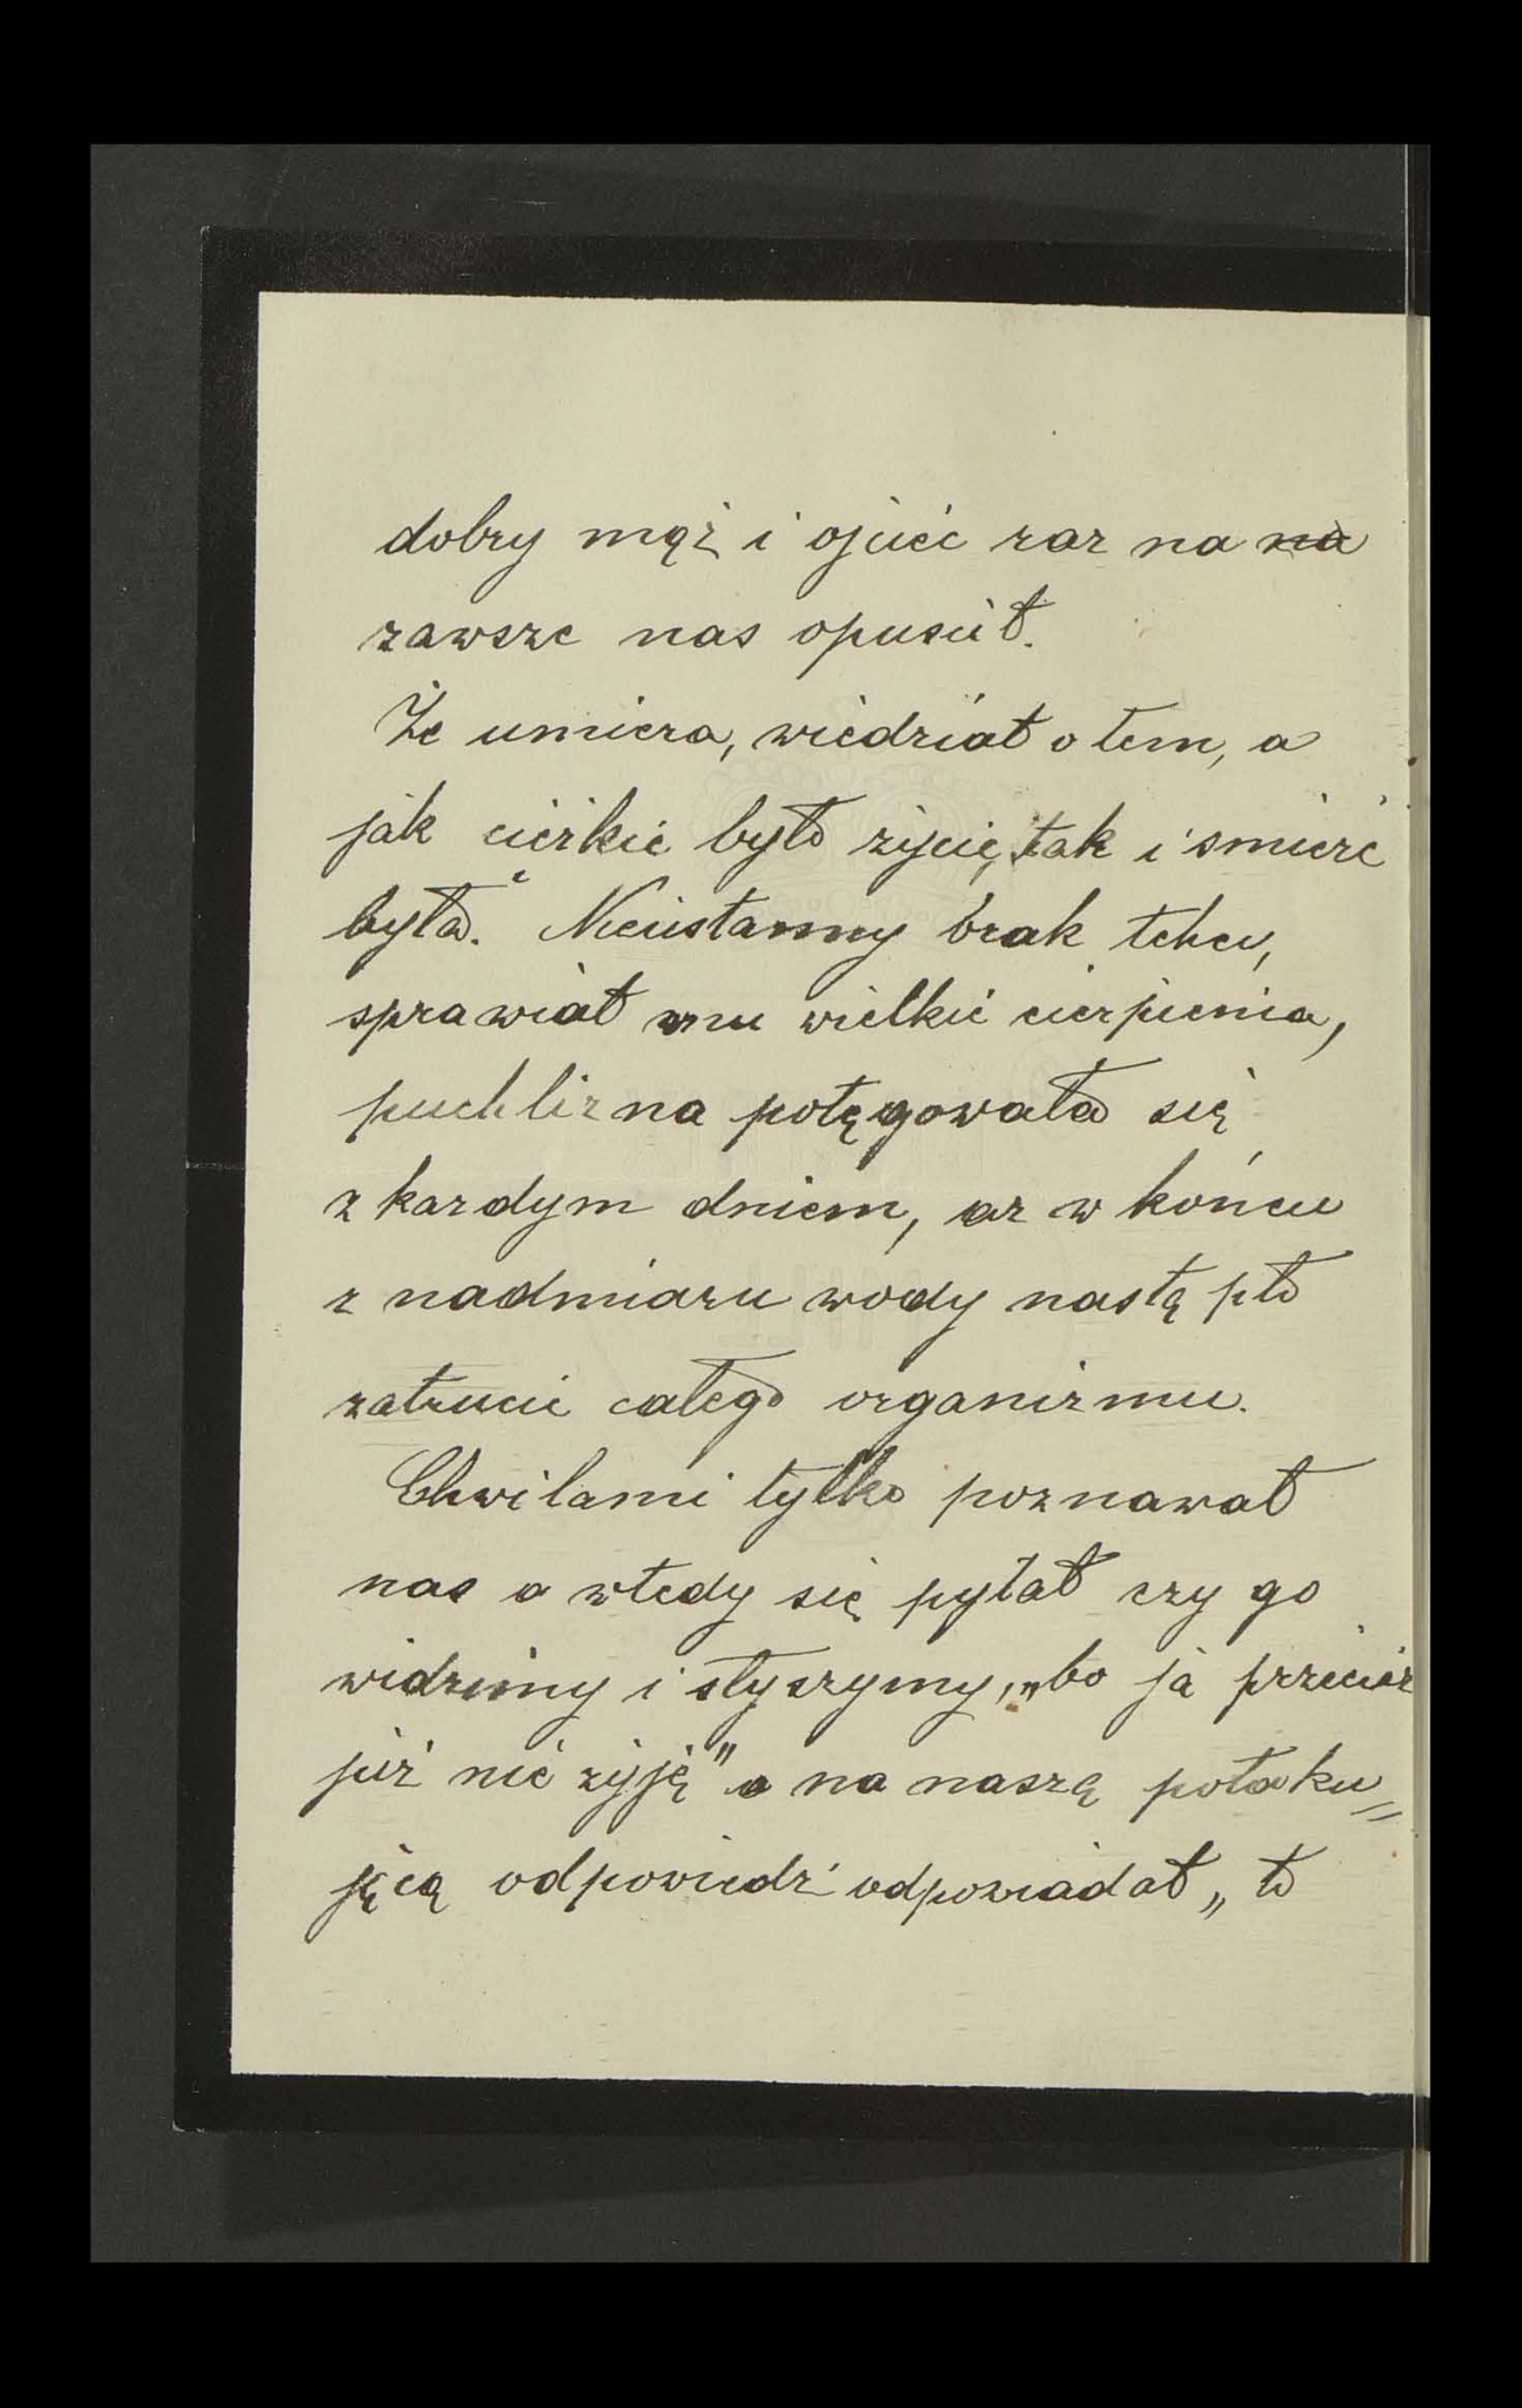 dobry mąż i ojciec raz na na
zawsze nas opuścił.
Że umiera, wiedział o tem, a
jak ciężkie było życie, tak i śmierć
była. Nieustanny brak tchu,
sprawiał mu wielkie cierpienia,
puchlizna potęgowała się
z kazdym dniem, az w końcu
z nadmiaru wody nastąpło
zatrucie całego organizmu.
Chwilami tylko poznawał
nas a wtedy się pytał czy go
widzimy i słyszymy, „bo ja przecież
już nie żyję" a na naszą potaku=
jącą odpowiedź odpowiadał „to